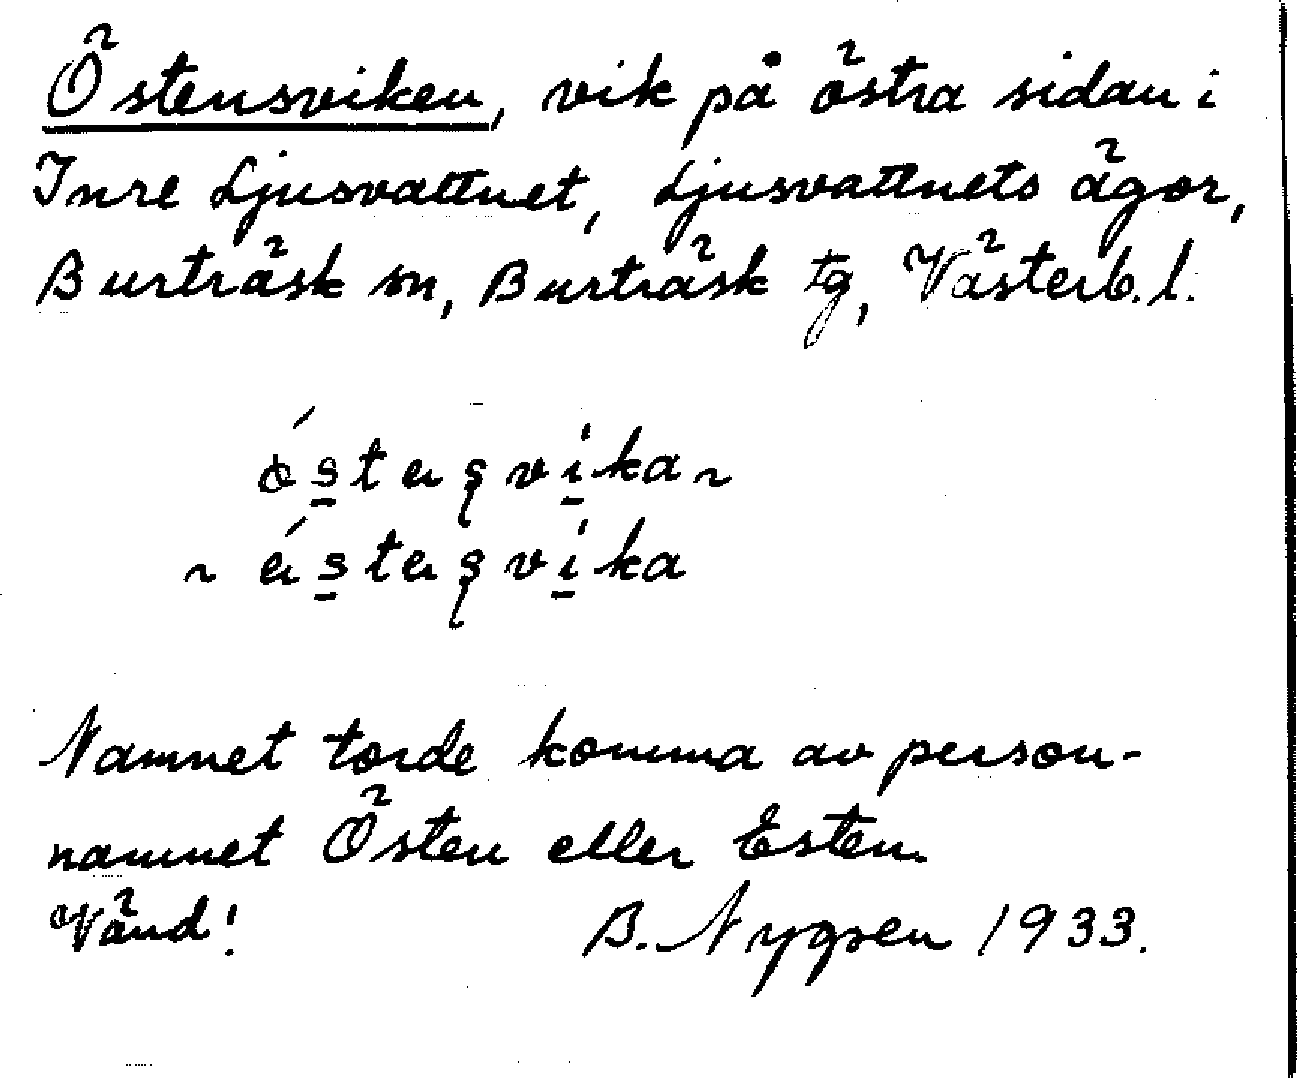 Östensviken, vik på östra sidan i
Inre Ljusvattnet, Ljusvattnets ägor,
Burträsk sn, Burträsk tg, Västerb. l.
Namnet torde komma av person-
namnet Östen eller Esten.
Vänd! B. Nygren 1933.